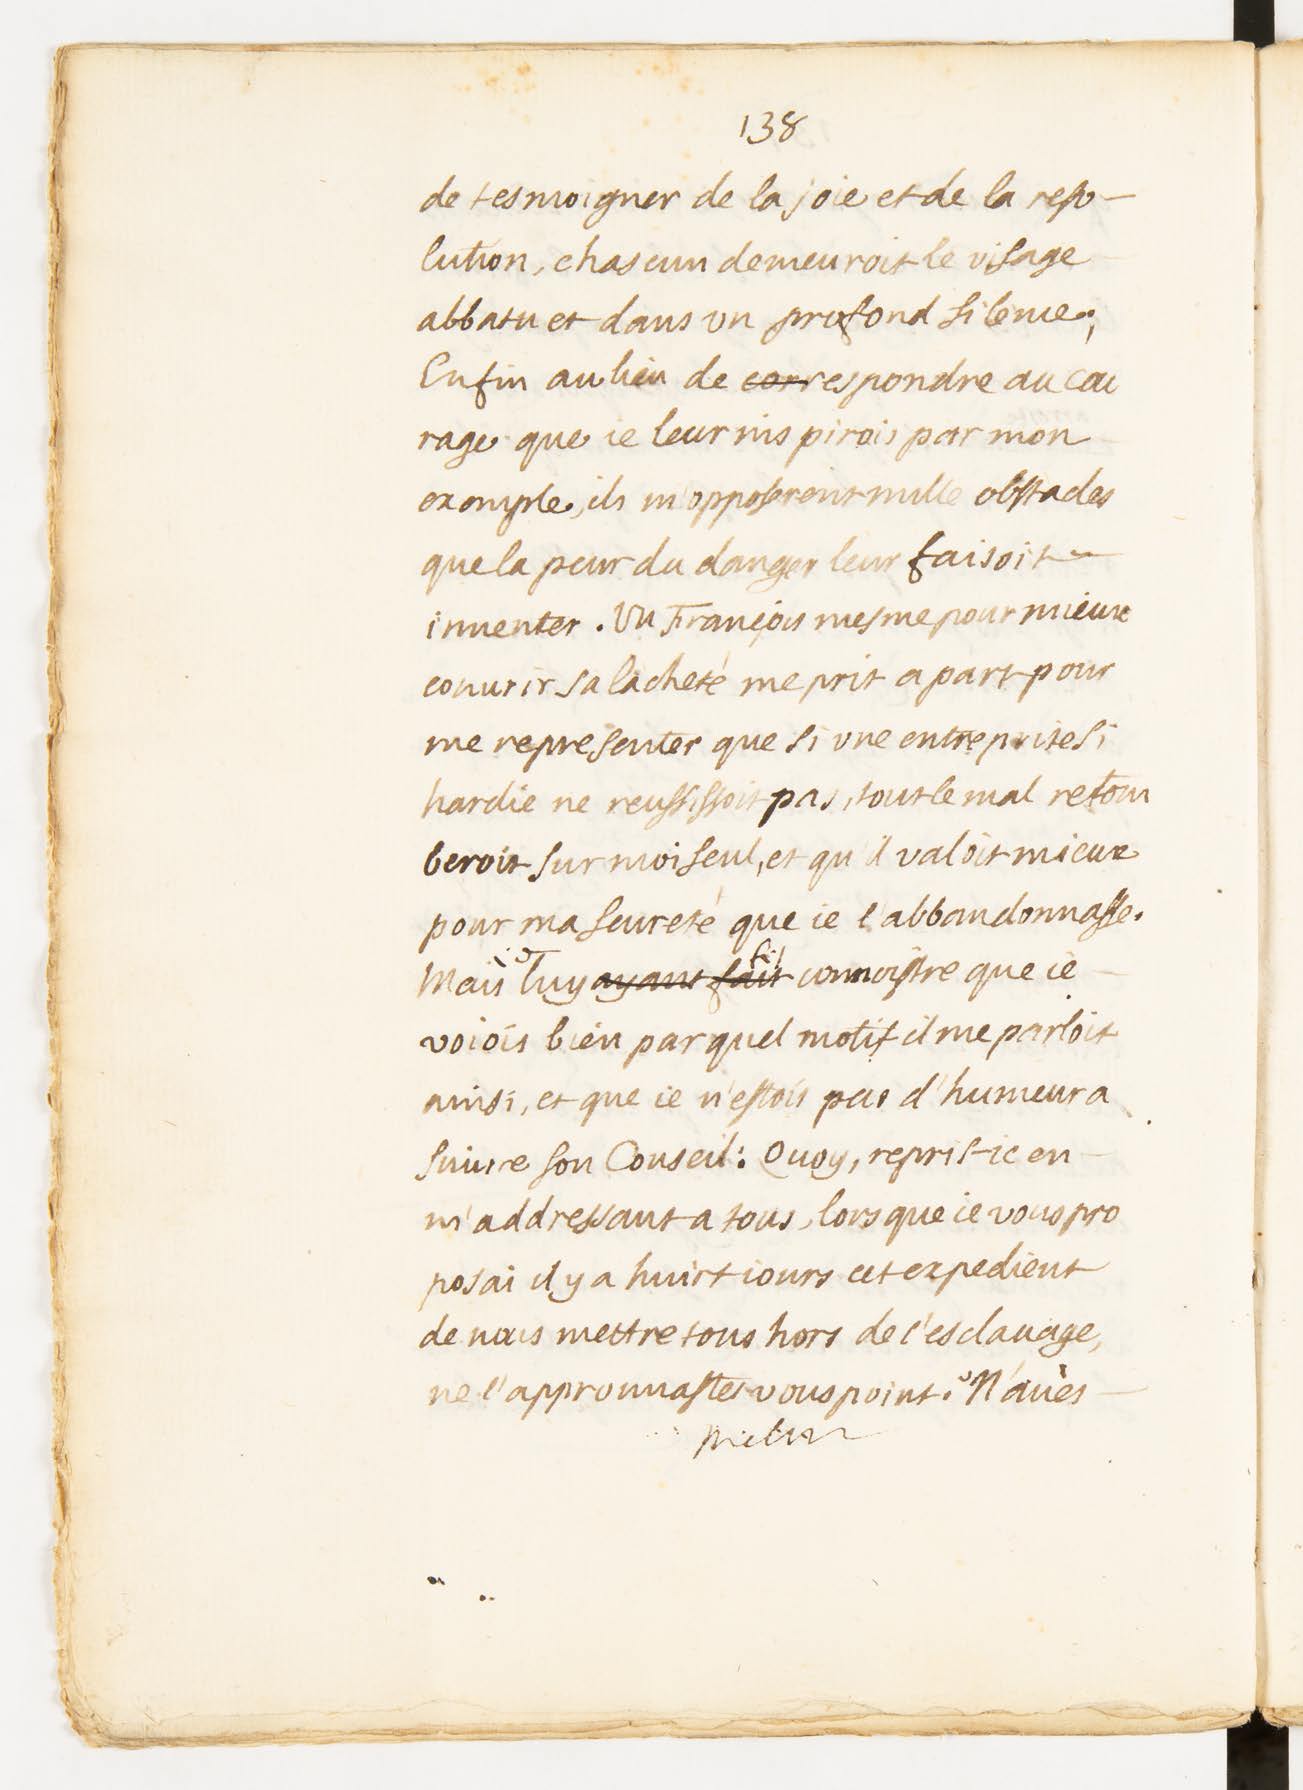 138
de tesmoigner de la joie et de la reso-
lution, chascun demeuroit le visage
abbatu et dans vn profond silence;
Enfin au lieu de correspondre au cou
rage que ie leur inspirois par mon
exemple, ils m'opposerent mille obstacles
que la peur du danger leur faisoit
inuenter. Vn François mesme pour mieux
couurir sa lacheté me prit a part pour
me representer que si vne entreprise si
hardie ne reussissoit pas, tout le mal retom
beroit sur moi seul, et qu'il valoit mieux
pour ma seureté que ie l'abbandonnasse.
Mais ie luy ayant fait fis connoistre que ie
voiois bien par quel motif il me parloit
ainsi, et que ie n'estois pas d'humeur a
suiure son Conseil: Quoy, repris-ie en
m'addressant a tous, lors que ie vous pro
posai il y a huict iours cet expedient
de nous mettre tous hors de l'esclauage,
ne l'approuuastes vous point? N'aués